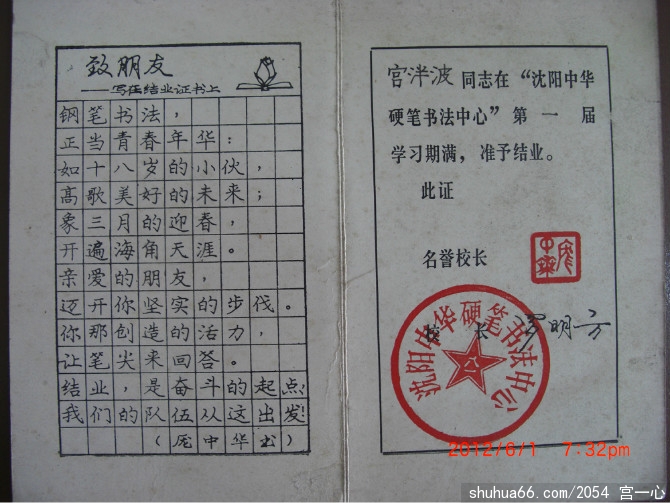 致朋友
——写在结业证书上
钢笔书法，
正当青春年华：
如十八岁的小伙，
高歌美好的未来；
象三月的迎春，
开遍海角天涯。
亲爱的朋友，
迈开你坚实的步伐。
你那创造的活力，
让笔尖来回答。
结业，是奋斗的起点
我们的队伍从这出发！
（庞中华书）
宫泮波同志在“沈阳中华
硬笔书法中心”第一届
学习期满，准予结业。
此证
名誉校长
庞中华
校长 罗明方
沈阳中华硬笔书法中心
2012/6/1 7:32pm
shuhua66.com/2054 宫一心